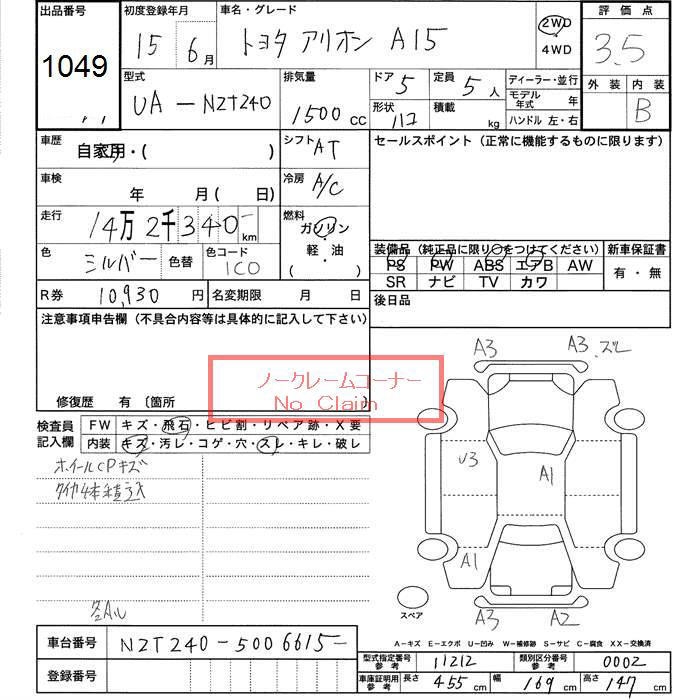 出品番号
1049
初度登録年月
15年 6月
車名・グレード
トヨタ アリオン A15
2WD
4WD
評価点
3.5
外装 内装
B
型式
UA-NZT240
排気量
1500 CC
ドア 5
定員 5 人
形状
積載 kg
ディーラー・並行
モデル年式 年
ハンドル 左・右
車歴
自家用・( )
シフト
AT
セールスポイント (正常に機能するものに限ります)
車検
年 月( 日)
冷房
A/C
走行
14万2千340- km
燃料
ガソリン
軽・油
( )
色
シルバー
色替
色コード
1C0
装備品 (純正品に限り○をつけてください)
PS PW ABS エアB AW
SR ナビ TV カワ
新車保証書
有・無
R券 10,930 円
名変期限 月 日
後日品
注意事項申告欄 (不具合内容等は具体的に記入して下さい)
ノークレームコーナー
No Claim
修復歴 有 〔箇所
検査員記入欄
FW キズ・飛石・ヒビ割・リペア跡・X要
内装 キズ・汚レ・コゲ・穴・スレ・キレ・破レ
ホイールCPキズ
タイヤ4本積込
各Aル
A3 A3 ズレ
U3 A1
A1
A3 A2
スペア
A-キズ E-エクボ U-凹み W-補修跡 S-サビ C-腐食 XX-交換済
車台番号 NZT240-5006615-
登録番号
型式指定番号参考 11212
類別区分番号参考 0002
車庫証明用参考 長さ 455 cm 幅 169 cm 高さ 147 cm